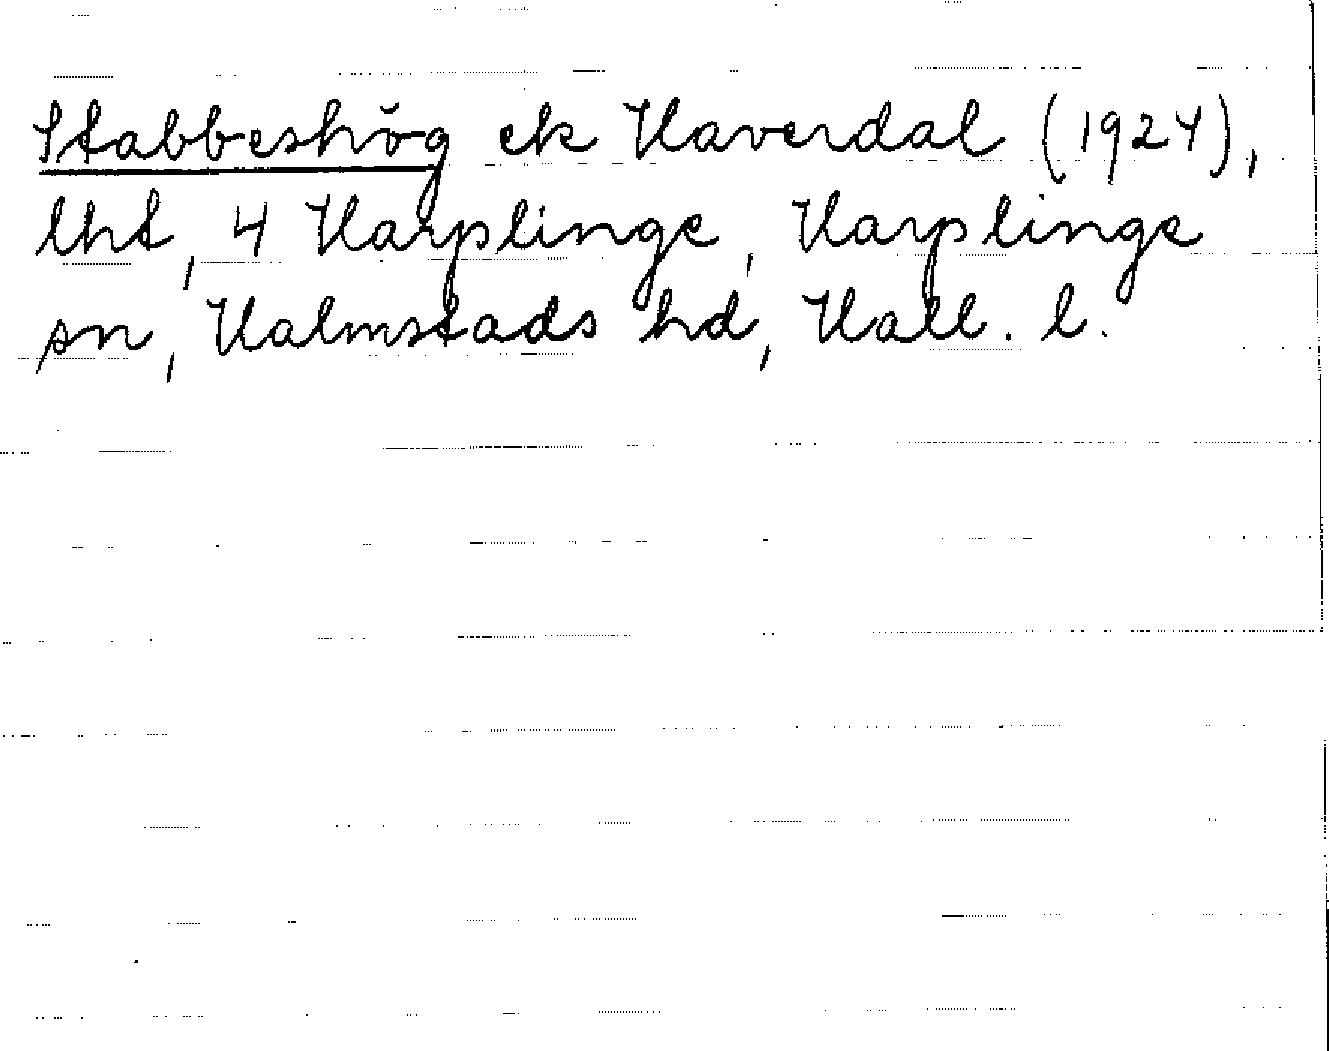 Stabbeshög ek Haverdal (1924),
lht, 4 Harplinge, Harplinge
sn, Halmstads hd, Hall. l.